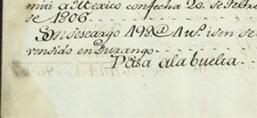 miti a Mexico con fecha 20. de Febre
de 1806.
Son descargo 198@ 1 us. id en se
vendido en Durango.
Pasa a la buelta